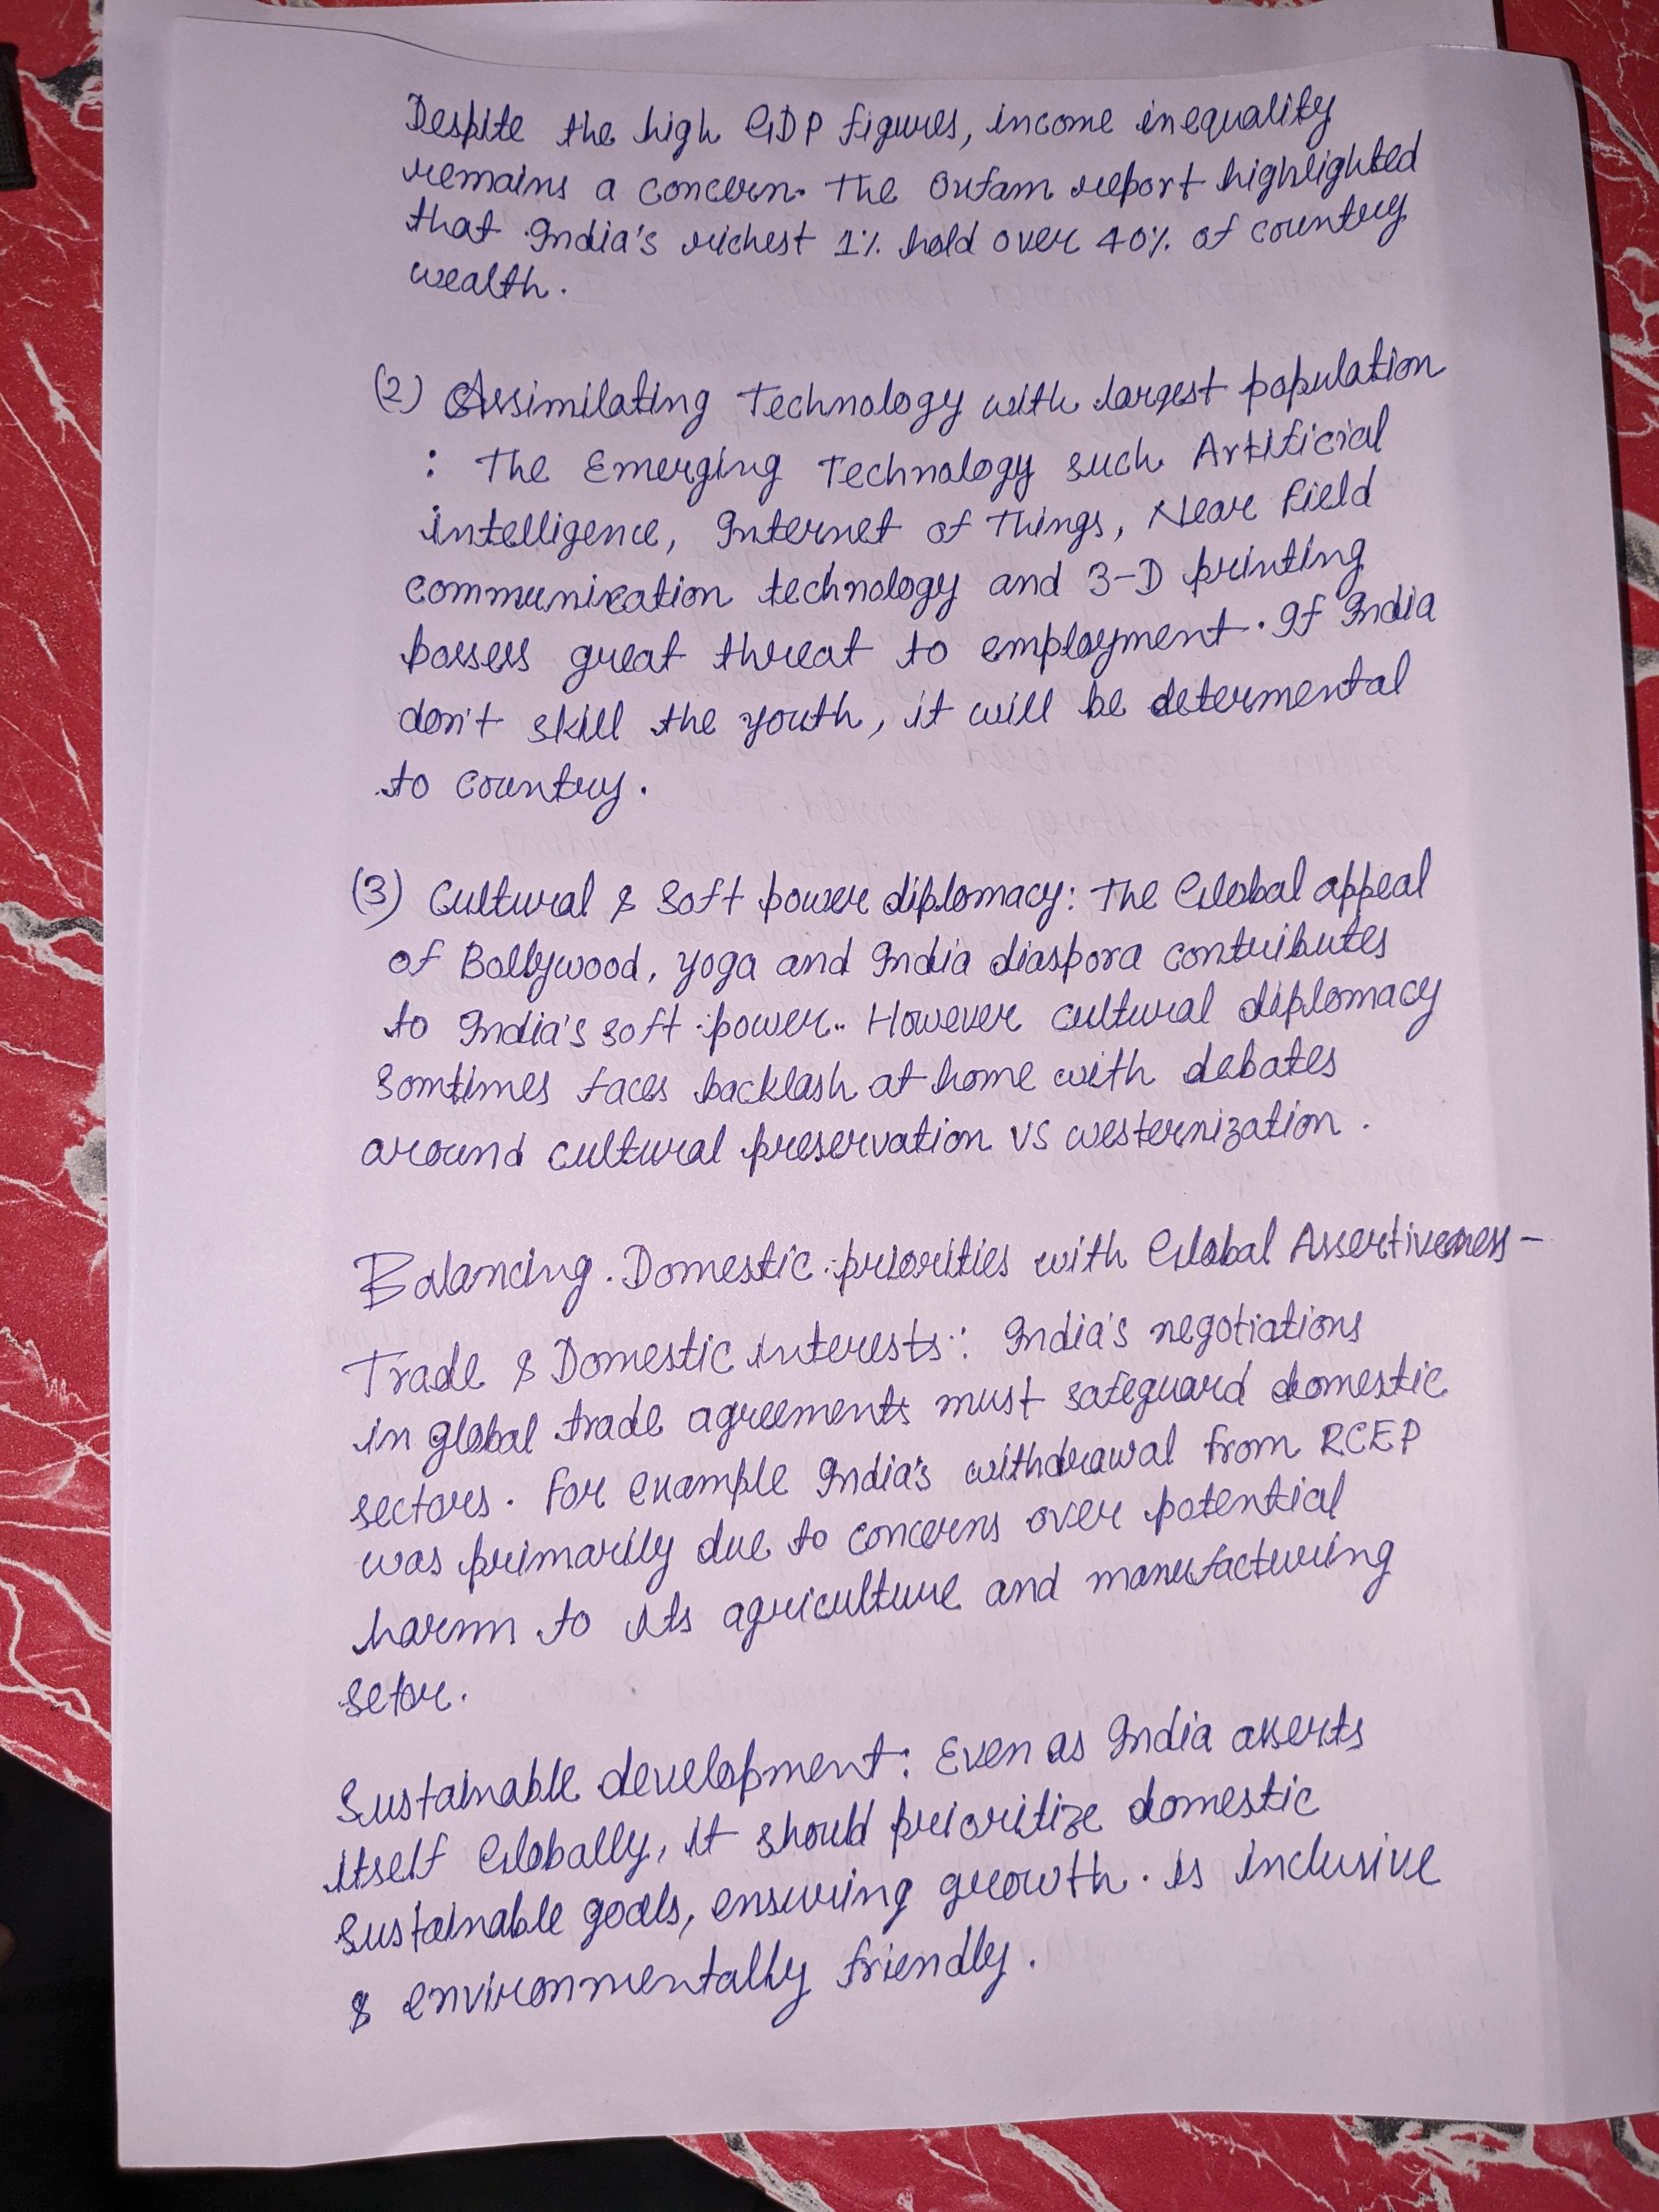 Despite the high GDP figures, income inequality
remains a concern. The Oxfam report highlighted
that India's richest 1% hold over 40% of country
wealth.
(2) Assimilating Technology with largest population
: The Emerging Technology such Artificial
intelligence, Internet of Things, Near Field
communication technology and 3-D printing
possess great threat to employment. If India
don't skill the youth, it will be determental
to country.
(3) Cultural & Soft power diplomacy: The Global appeal
of Bollywood, yoga and India diaspora contributes
to India's soft power.. However cultural diplomacy
Somtimes faces backlash at home with debates
around cultural preservation vs westernization.
Balancing Domestic priorities with Global Assertiveness -
Trade & Domestic interests: India's negotiations
in global trade agreements must safeguard domestic
sectors. For example India's withdrawal from RCEP
was primarily due to concerns over potential
harm to its agriculture and manufacturing
setor.
Sustainable development: Even as India asserts
itself Globally, it should prioritize domestic
sustainable goals, ensuring growth is inclusive
& environmentally friendly.